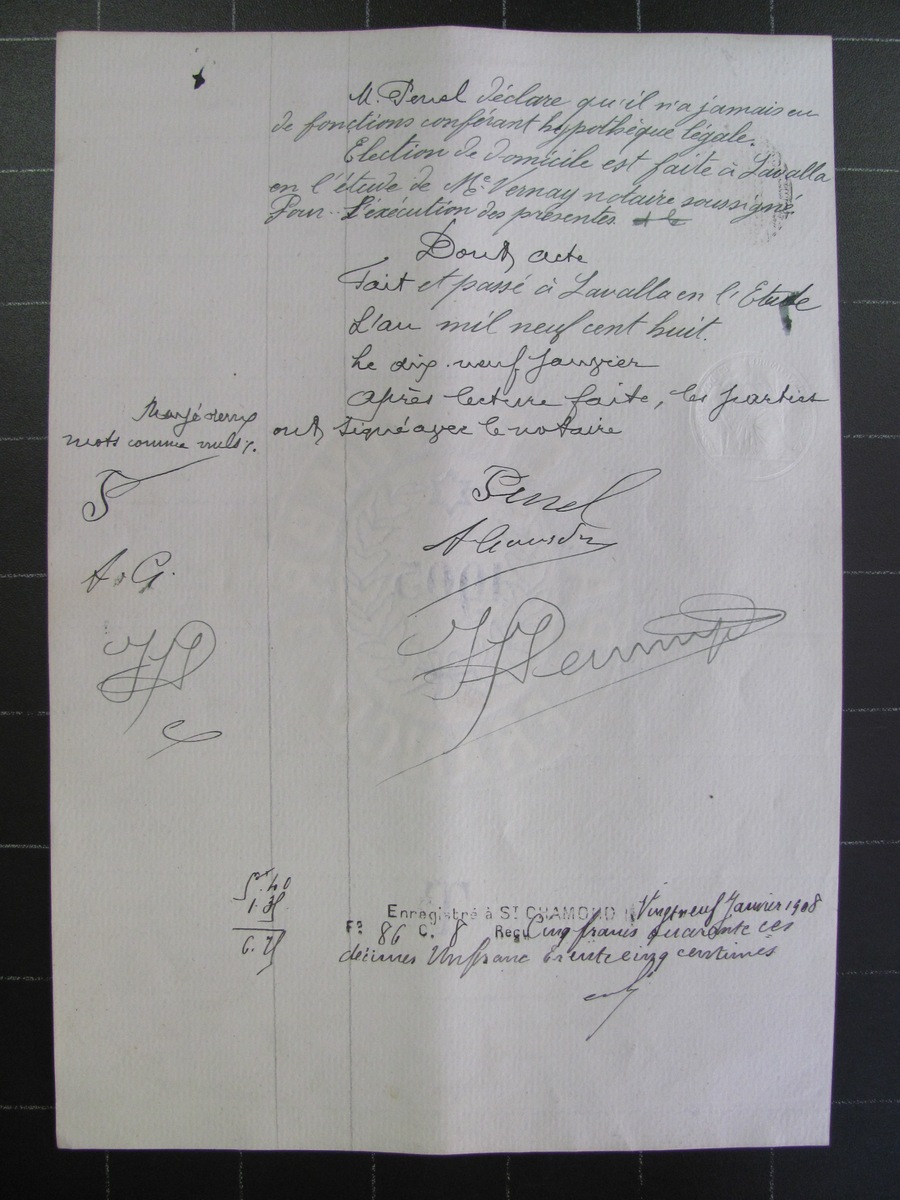 M. Penel déclare qu'il n'a jamais eu
de fonctions conférant hypothèque légale.
Election de domicile est faite à Lavalla
en l'étude de Me Vernay notaire soussigné
Pour l'exécution des présentes.
Dont acte
Fait et passé à Lavalla en l'Etude
L'an mil neuf cent huit.
Le dix-neuf Janvier
Après lecture faite, les parties
ont signé avec le notaire
Rayé deux
mots comme nuls
Penel
A. G.
5 40
1.35
6.75
Enregistré à ST CHAMOND le Vingt neuf Janvier 1908
F° 86 C. 8 Reçu Cinq francs quarante ces
décimes Un franc trente cinq centimes